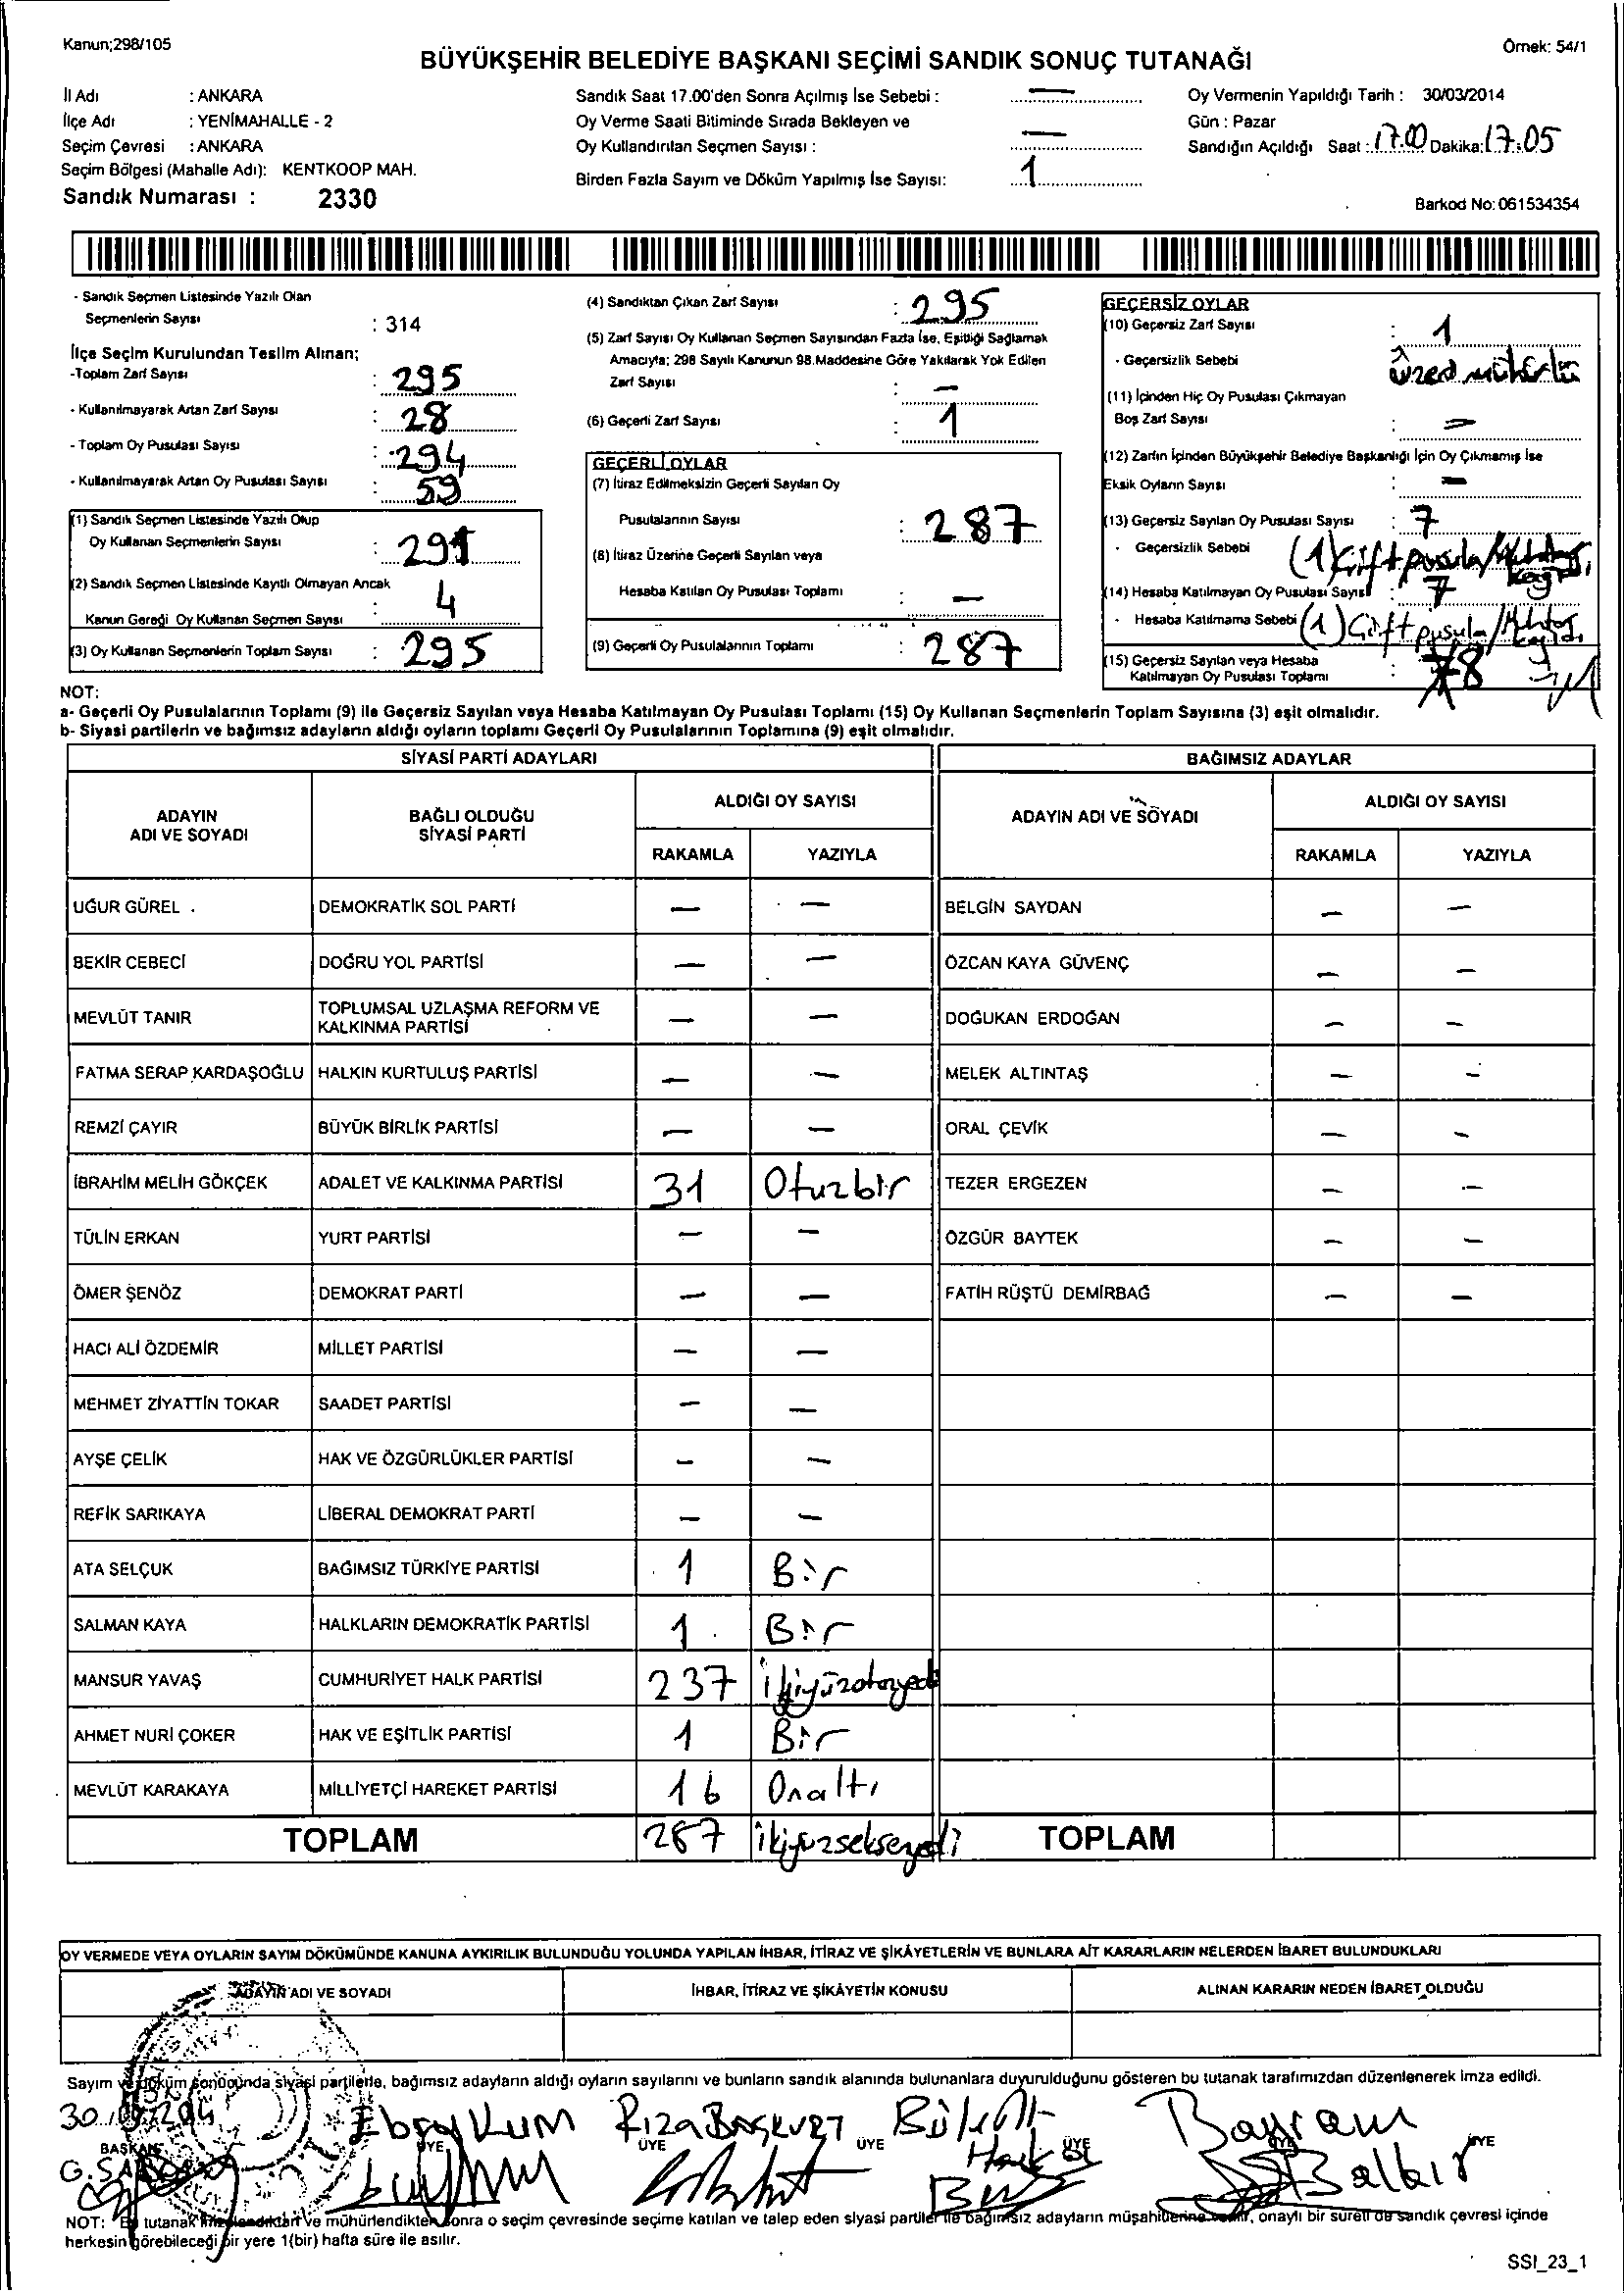 Kanun;298/105
Örnek: 54/1
BÜYÜKŞEHİR BELEDİYE BAŞKANI SEÇİMİ SANDIK SONUÇ TUTANAĞI
İl Adı : ANKARA
İlçe Adı : YENİMAHALLE - 2
Seçim Çevresi : ANKARA
Seçim Bölgesi (Mahalle Adı): KENTKOOP MAH.
Sandık Numarası : 2330
Sandık Saat 17.00'den Sonra Açılmış İse Sebebi : —
Oy Verme Saati Bitiminde Sırada Bekleyen ve
Oy Kullandırılan Seçmen Sayısı : —
Birden Fazla Sayım ve Döküm Yapılmış İse Sayısı: 1
Oy Vermenin Yapıldığı Tarih : 30/03/2014
Gün : Pazar
Sandığın Açıldığı Saat : 17.00 Dakika: 17:05
Barkod No: 061534354
- Sandık Seçmen Listesinde Yazılı Olan
Seçmenlerin Sayısı : 314
İlçe Seçim Kurulundan Teslim Alınan;
-Toplam Zarf Sayısı : 295
- Kullanılmayarak Artan Zarf Sayısı : 28
- Toplam Oy Pusulası Sayısı : 294
- Kullanılmayarak Artan Oy Pusulası Sayısı : 59
(1) Sandık Seçmen Listesinde Yazılı Olup
Oy Kullanan Seçmenlerin Sayısı : 291
(2) Sandık Seçmen Listesinde Kayıtlı Olmayan Ancak
Kanun Gereği Oy Kullanan Seçmen Sayısı : 4
(3) Oy Kullanan Seçmenlerin Toplam Sayısı : 295
(4) Sandıktan Çıkan Zarf Sayısı : 295
(5) Zarf Sayısı Oy Kullanan Seçmen Sayısından Fazla İse, Eşitliği Sağlamak
Amacıyla; 298 Sayılı Kanunun 98.Maddesine Göre Yakılarak Yok Edilen
Zarf Sayısı : —
(6) Geçerli Zarf Sayısı : 1
GEÇERLİ OYLAR
(7) İtiraz Edilmeksizin Geçerli Sayılan Oy
Pusulalarının Sayısı : 287
(8) İtiraz Üzerine Geçerli Sayılan veya
Hesaba Katılan Oy Pusulası Toplamı : —
(9) Geçerli Oy Pusulalarının Toplamı : 287
GEÇERSİZ OYLAR
(10) Geçersiz Zarf Sayısı : 1
- Geçersizlik Sebebi : üzeri mühürlü
(11) İçinden Hiç Oy Pusulası Çıkmayan
Boş Zarf Sayısı : —
(12) Zarfın İçinden Büyükşehir Belediye Başkanlığı İçin Oy Çıkmamış İse
Eksik Oyların Sayısı : —
(13) Geçersiz Sayılan Oy Pusulası Sayısı : 7
- Geçersizlik Sebebi (1) Çift pusula/Muhtar kağıdı
(14) Hesaba Katılmayan Oy Pusulası Sayısı : 7
- Hesaba Katılmama Sebebi (1) Çift pusula/Muhtar kağıdı
(15) Geçersiz Sayılan veya Hesaba
Katılmayan Oy Pusulası Toplamı : 8
NOT:
a- Geçerli Oy Pusulalarının Toplamı (9) ile Geçersiz Sayılan veya Hesaba Katılmayan Oy Pusulası Toplamı (15) Oy Kullanan Seçmenlerin Toplam Sayısına (3) eşit olmalıdır.
b- Siyasi partilerin ve bağımsız adayların aldığı oyların toplamı Geçerli Oy Pusulalarının Toplamına (9) eşit olmalıdır.
SİYASİ PARTİ ADAYLARI
BAĞIMSIZ ADAYLAR
ADAYIN ADI VE SOYADI
BAĞLI OLDUĞU SİYASİ PARTİ
ALDIĞI OY SAYISI
RAKAMLA YAZIYLA
ADAYIN ADI VE SOYADI
ALDIĞI OY SAYISI
RAKAMLA YAZIYLA
UĞUR GÜREL DEMOKRATİK SOL PARTİ — — BELGİN SAYDAN — —
BEKİR CEBECİ DOĞRU YOL PARTİSİ — — ÖZCAN KAYA GÜVENÇ — —
MEVLÜT TANIR TOPLUMSAL UZLAŞMA REFORM VE KALKINMA PARTİSİ — — DOĞUKAN ERDOĞAN — —
FATMA SERAP KARDAŞOĞLU HALKIN KURTULUŞ PARTİSİ — — MELEK ALTINTAŞ — —
REMZİ ÇAYIR BÜYÜK BİRLİK PARTİSİ — — ORAL ÇEVİK — —
İBRAHİM MELİH GÖKÇEK ADALET VE KALKINMA PARTİSİ 31 Otuzbir TEZER ERGEZEN — —
TÜLİN ERKAN YURT PARTİSİ — — ÖZGÜR BAYTEK — —
ÖMER ŞENÖZ DEMOKRAT PARTİ — — FATİH RÜŞTÜ DEMİRBAĞ — —
HACI ALİ ÖZDEMİR MİLLET PARTİSİ — —
MEHMET ZİYATTİN TOKAR SAADET PARTİSİ — —
AYŞE ÇELİK HAK VE ÖZGÜRLÜKLER PARTİSİ — —
REFİK SARIKAYA LİBERAL DEMOKRAT PARTİ — —
ATA SELÇUK BAĞIMSIZ TÜRKİYE PARTİSİ 1 Bir
SALMAN KAYA HALKLARIN DEMOKRATİK PARTİSİ 1 Bir
MANSUR YAVAŞ CUMHURİYET HALK PARTİSİ 237 ikiyüzotuzyedi
AHMET NURİ ÇOKER HAK VE EŞİTLİK PARTİSİ 1 Bir
MEVLÜT KARAKAYA MİLLİYETÇİ HAREKET PARTİSİ 16 Onaltı
TOPLAM 287 ikiyüzseksenyedi TOPLAM
OY VERMEDE VEYA OYLARIN SAYIM DÖKÜMÜNDE KANUNA AYKIRILIK BULUNDUĞU YOLUNDA YAPILAN İHBAR, İTİRAZ VE ŞİKÂYETLERİN VE BUNLARA AİT KARARLARIN NELERDEN İBARET BULUNDUKLARI
ADAYIN ADI VE SOYADI
İHBAR, İTİRAZ VE ŞİKÂYETİN KONUSU
ALINAN KARARIN NEDEN İBARET OLDUĞU
Sayım ve döküm sonucunda siyasi partilerle, bağımsız adayların aldığı oyların sayılarını ve bunların sandık alanında bulunanlara duyurulduğunu gösteren bu tutanak tarafımızdan düzenlenerek imza edildi.
Rıza Bayram
BAŞKAN ÜYE ÜYE ÜYE ÜYE ÜYE ÜYE
Balbır
NOT: Bu tutanak ve mühürlendikten sonra o seçim çevresinde seçime katılan ve talep eden siyasi partiler ile bağımsız adayların müşahitlerine verilir, onaylı bir sureti de sandık çevresi içinde
herkesin görebileceği bir yere 1(bir) hafta süre ile asılır.
SSI_23_1